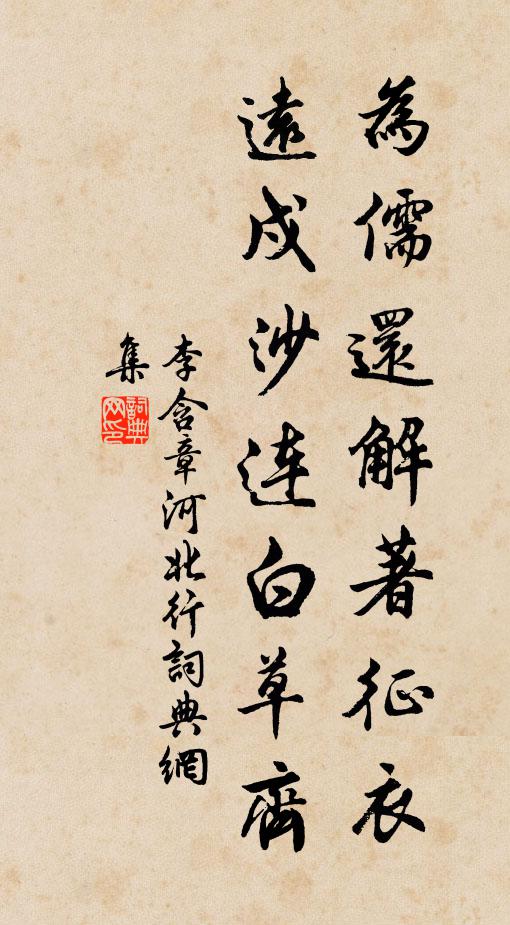 為儒還解著征衣
遠戍沙連白草齊
李含章河北行詞典網
集
詞典
网印